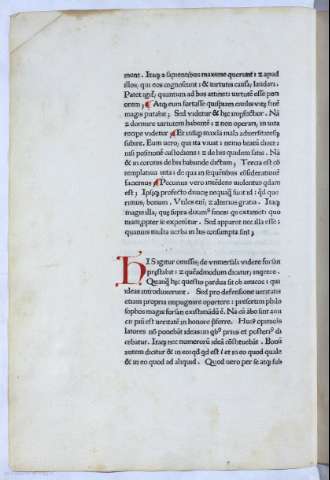 mont. Itaq; a sapientibus maxime querunt: & apud
illos; qui eos cognoscunt: & uirtutis causa; laudari.
Patet igit̃; quantum ad hos attinet: uirtutē esse poti
orem; Atq; eum fortasse quispiam ciuilis uitę finē
magis putabit; Sed uidetur & hęc imperfectior. Nā
& dormire uirtutem habentē: & non operari, in uita
recipe uidetur Et insup maxīa mala aduersitatesq;
subire. Eum uero; qui ita uiuat: nemo beatū dicet:
nisi positionē custodiens: & de his quidem satis. Nā
& in coronis de his habunde dictum; Tercia est cō
templatiua uita: de qua in sequētibus cōsiderationē
faciemus Pecunius uero intēdens uiolentus quidam
est; Ipsasq; profecto diuicię nequaq̃ sunt id: qđ que
rimus; bonum. Vtiles eni; & alterius gratia. Itaq;
magis illa; que supra diximꝰ fines quis existimet: quo
niam ppter se expetitur. Sed apparet nec illa esse:
quanuis multa uerba in his consumpta sint;
HIS igitur omissis; de uniuersali uidere forsan
prestabit: & quēadmodum dicatur; ingrere.
Quanq̃ hęc questio perdua sit ob amicos: qui
ideas introduxerunt. Sed pro defensione ueritatis
etiam propria impugnare oportere: presertim philo
sophos magis forsan existimādū ē. Nā cū ābo sint ami
ce: piū est ueritatē in honore pferre. Huiꝰ opinionis
latores nō ponebāt ideas: in qbꝰ prius et posteriꝰ di
cebatur. Itaq; nec numerorū ideā cōstituebāt. Bonū
autem dicitur & in eo: qđ qd est: et in eo quod quale
& in eo quod ad aliquid. Quod uero per se atq; sub